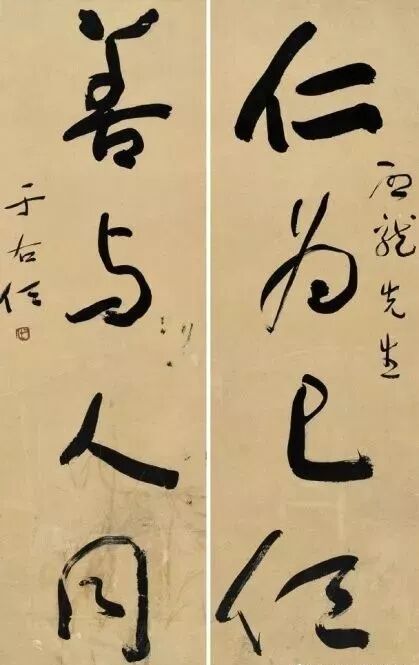 仁为己任
龙先生
善与人同
于右任